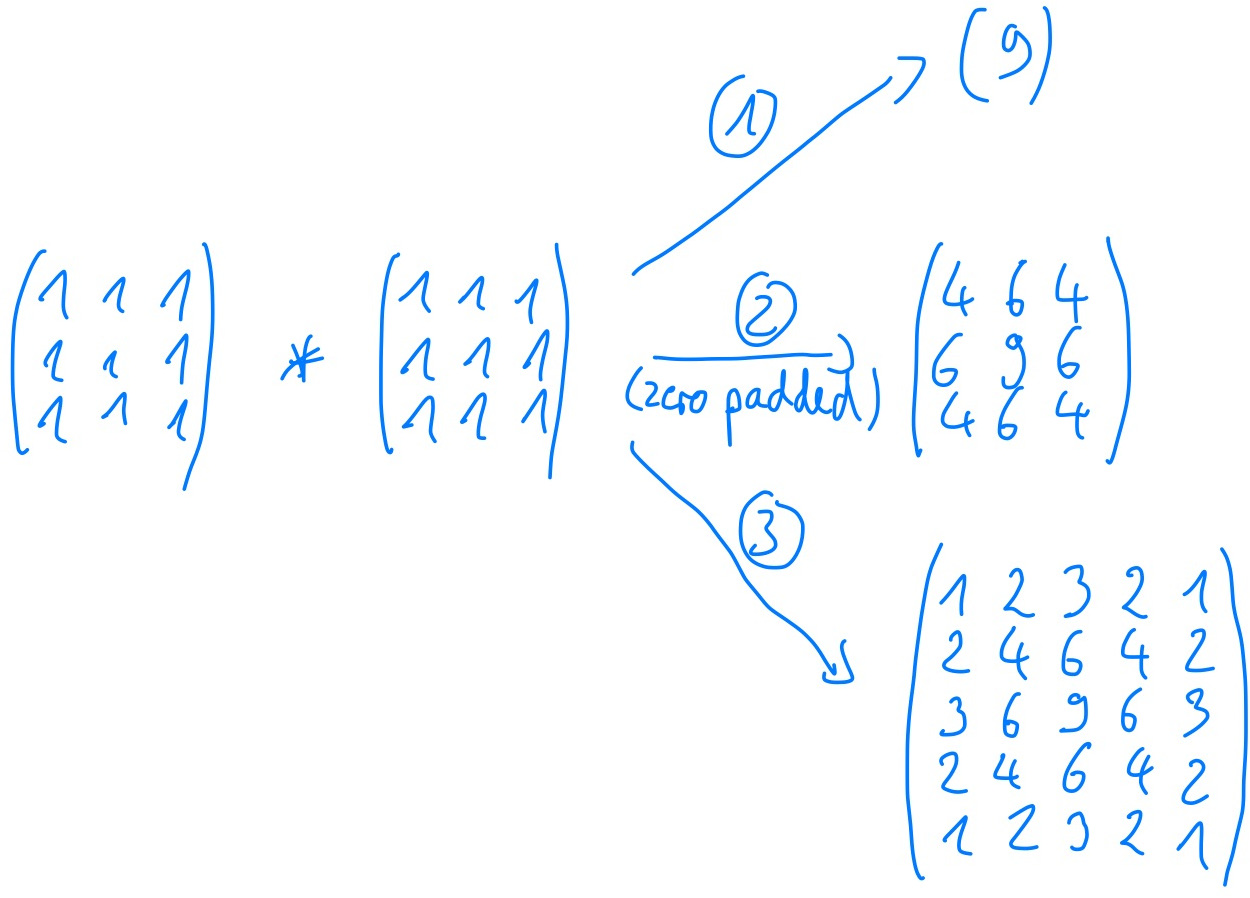 ① (9)
(1 1 1
1 1 1
1 1 1) * (1 1 1
1 1 1
1 1 1)
② (zero padded) (4 6 4
6 9 6
4 6 4)
③
(1 2 3 2 1
2 4 6 4 2
3 6 9 6 3
2 4 6 4 2
1 2 3 2 1)